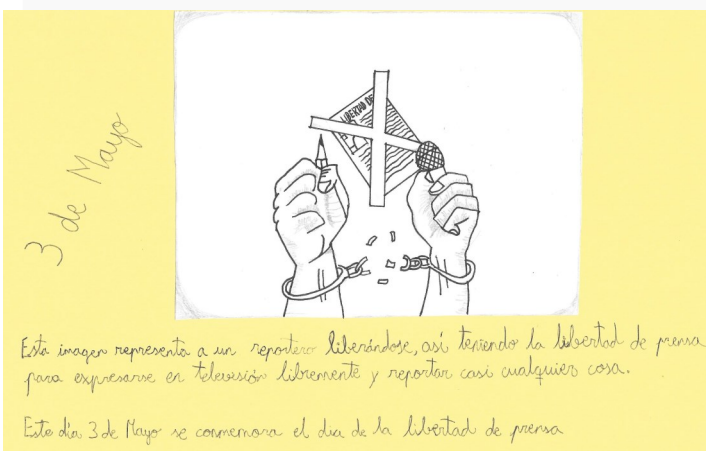 3 de Mayo
LIBERTAD DE
Esta imagen representa a un reportero liberándose, así teniendo la libertad de prensa
para expresarse en televisión libremente y reportar casi cualquier cosa.
Este día 3 de Mayo se conmemora el dia de la libertad de prensa